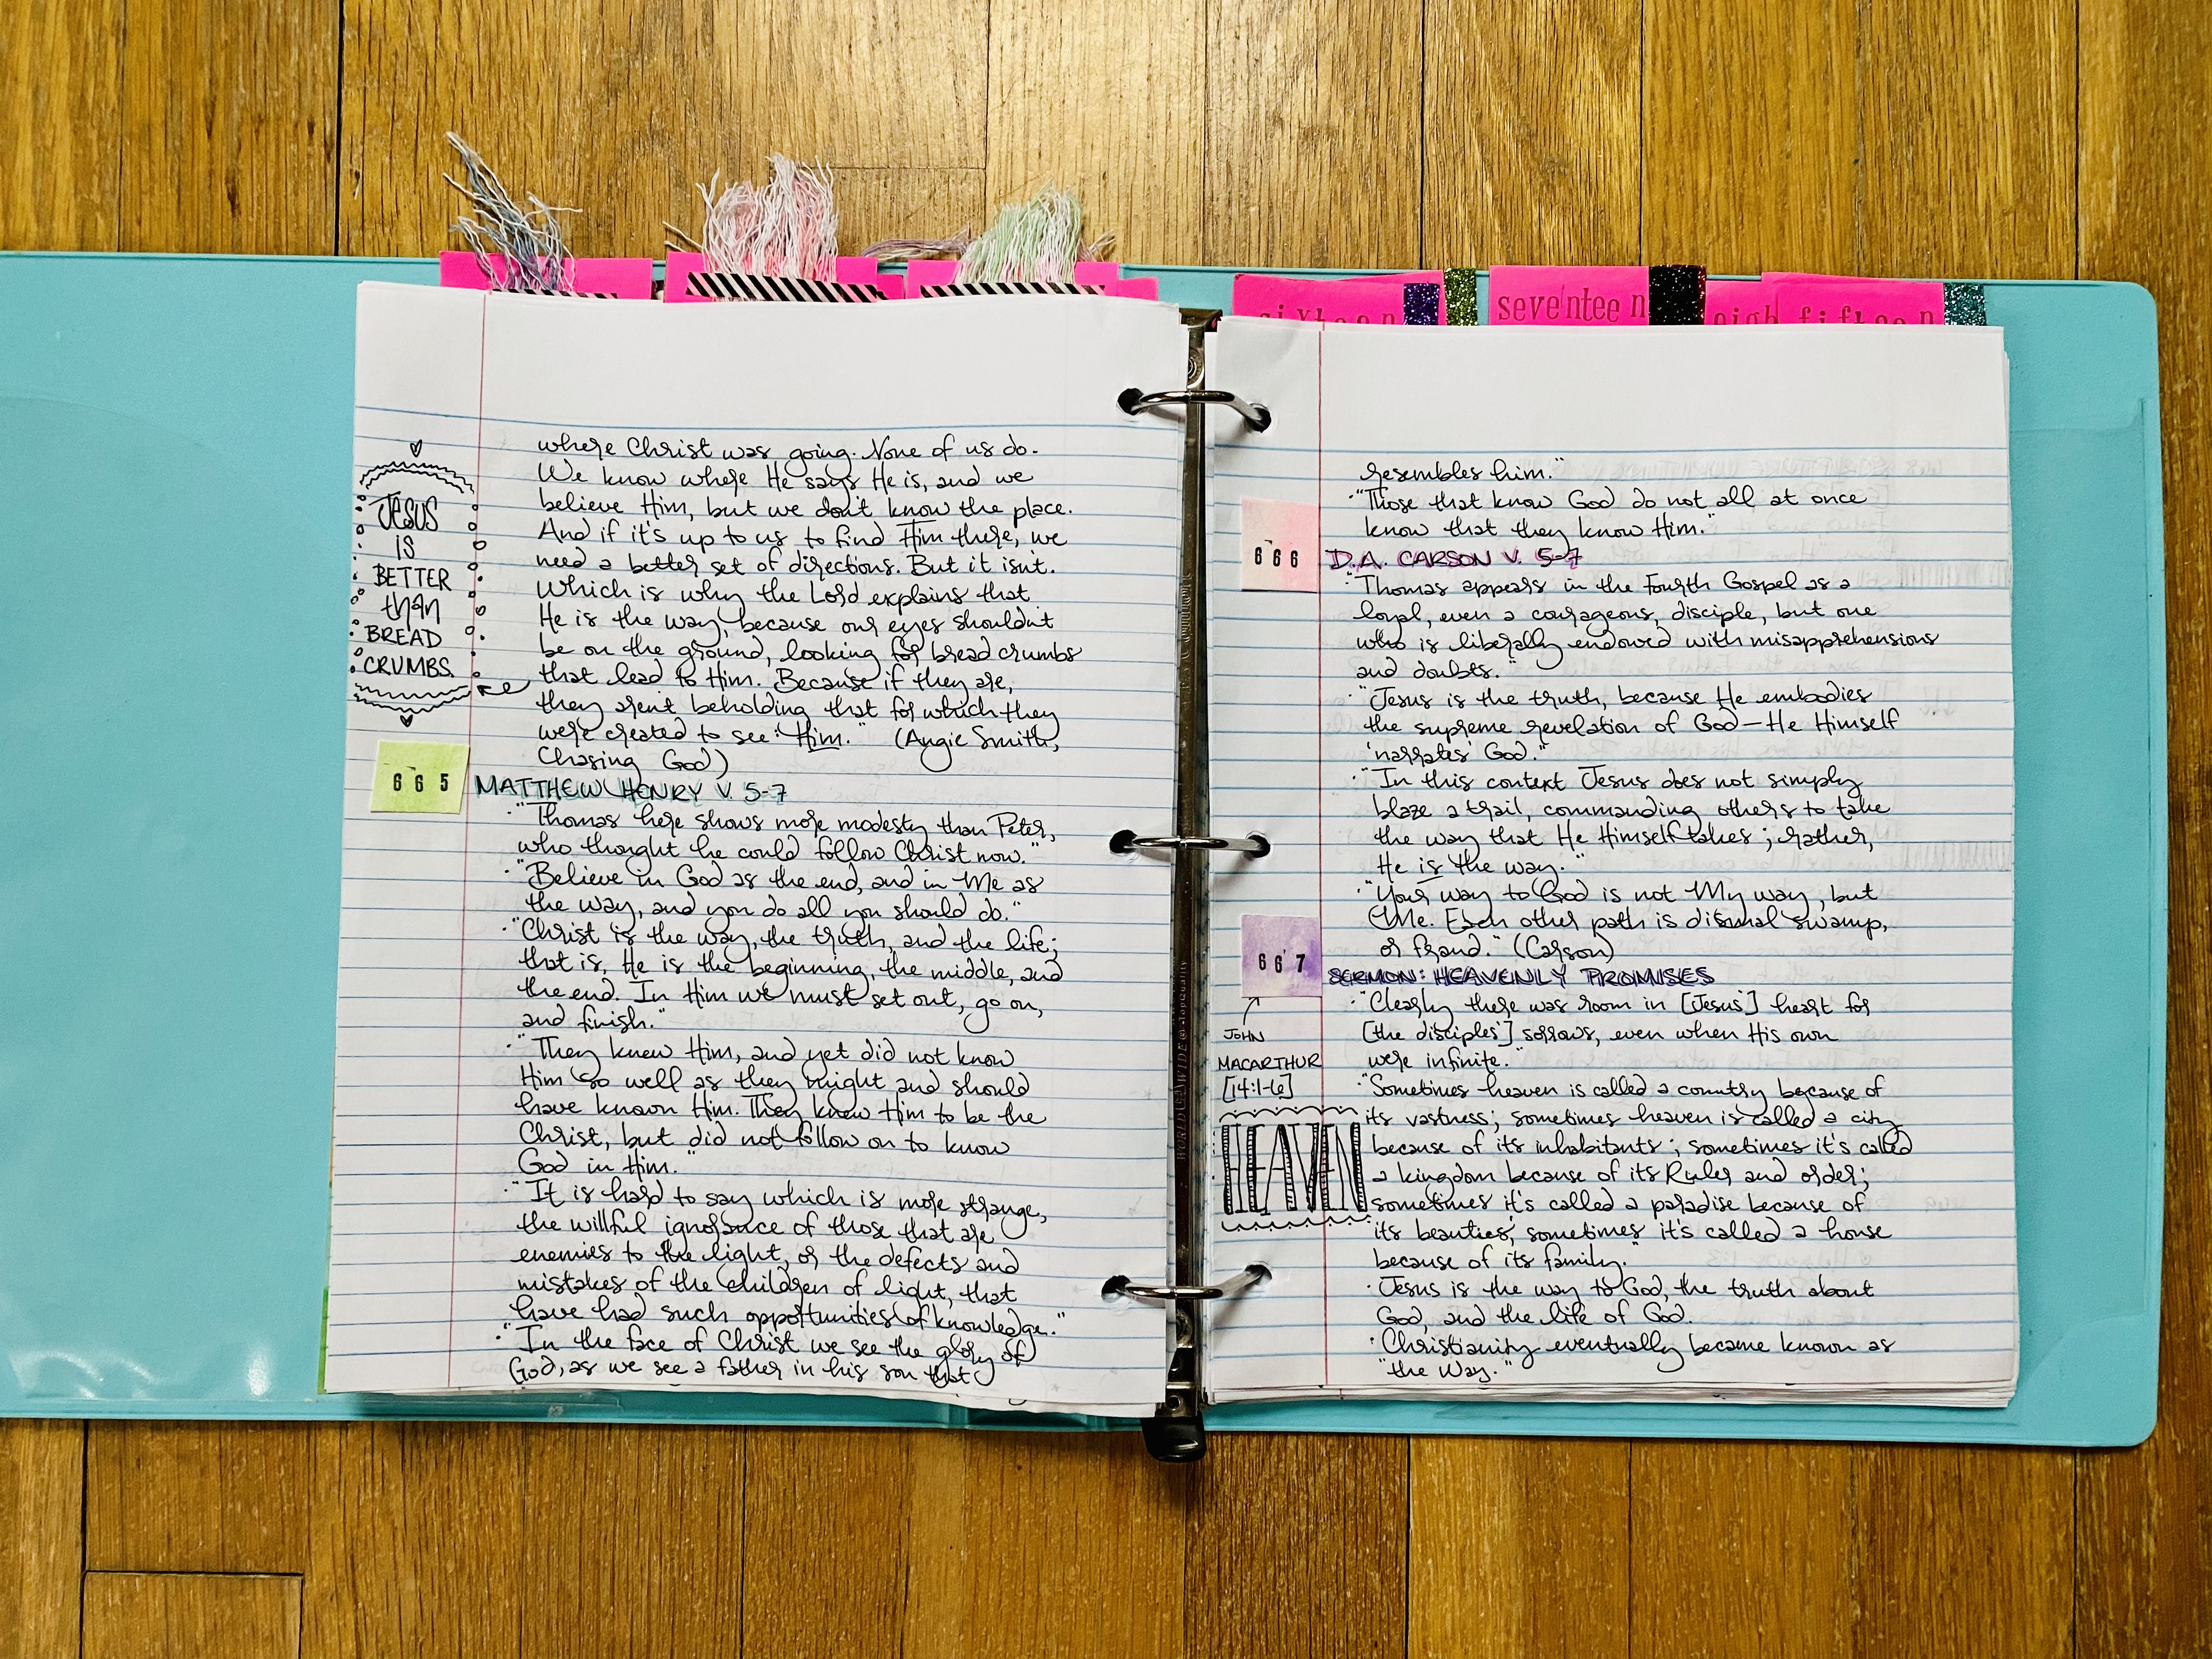 sixteen
seventeen
eigh
fifteen
where Christ was going. None of us do.
We know where He says He is, and we
believe Him, but we don't know the place.
And if it's up to us to find Him there, we
need a better set of directions. But it isn't.
Which is why the Lord explains that
He is the way, because our eyes shouldn't
be on the ground, looking for bread crumbs
that lead to Him. Because if they are,
they aren't beholding that for which they
were created to see: Him." (Angie Smith,
Chasing God)
JESUS
IS
BETTER
than
BREAD
CRUMBS
665 MATTHEW HENRY V. 5-7
·"Thomas here shows more modesty than Peter,
who thought he could follow Christ now."
·"Believe in God as the end, and in Me as
the way, and you do all you should do."
·"Christ is the way, the truth, and the life;
that is, He is the beginning, the middle, and
the end. In Him we must set out, go on,
and finish."
·"They knew Him, and yet did not know
Him so well as they might and should
have known Him. They knew Him to be the
Christ, but did not follow on to know
God in Him."
·"It is hard to say which is more strange,
the willful ignorance of those that are
enemies to the light, or the defects and
mistakes of the children of light, that
have had such opportunities of knowledge."
·"In the face of Christ we see the glory of
God, as we see a father in his son that
resembles him."
·"Those that know God do not all at once
know that they know Him."
666 D.A. CARSON V. 5-7
·"Thomas appears in the Fourth Gospel as a
loyal, even a courageous, disciple, but one
who is liberally endowed with misapprehensions
and doubts."
·"Jesus is the truth, because He embodies
the supreme revelation of God—He Himself
'narrates' God."
·"In this context Jesus does not simply
blaze a trail, commanding others to take
the way that He Himself takes; rather,
He is the way."
·"Your way to God is not My way, but
Me. Each other path is dismal swamp,
or fraud." (Carson)
667 SERMON: HEAVENLY PROMISES
JOHN
MACARTHUR
[14:1-6]
·"Clearly there was room in [Jesus'] heart for
[the disciples'] sorrows, even when His own
were infinite."
·"Sometimes heaven is called a country because of
its vastness; sometimes heaven is called a city
because of its inhabitants; sometimes it's called
a kingdom because of its Ruler and order;
sometimes it's called a paradise because of
its beauties; sometimes it's called a house
because of its family."
HEAVEN
·Jesus is the way to God, the truth about
God, and the life of God.
·Christianity eventually became known as
"the Way."